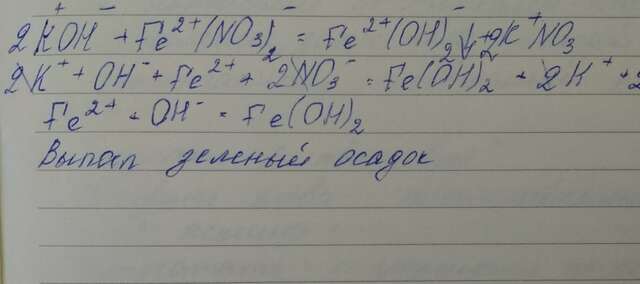 2KOH + Fe²⁺(NO₃)₂ = Fe²⁺(OH)₂↓ + 2K⁺NO₃
2K⁺ + OH⁻ + Fe²⁺ + 2NO₃⁻ = Fe(OH)₂ + 2K⁺ + 2
Fe²⁺ + OH⁻ = Fe(OH)₂
Выпал зеленый осадок